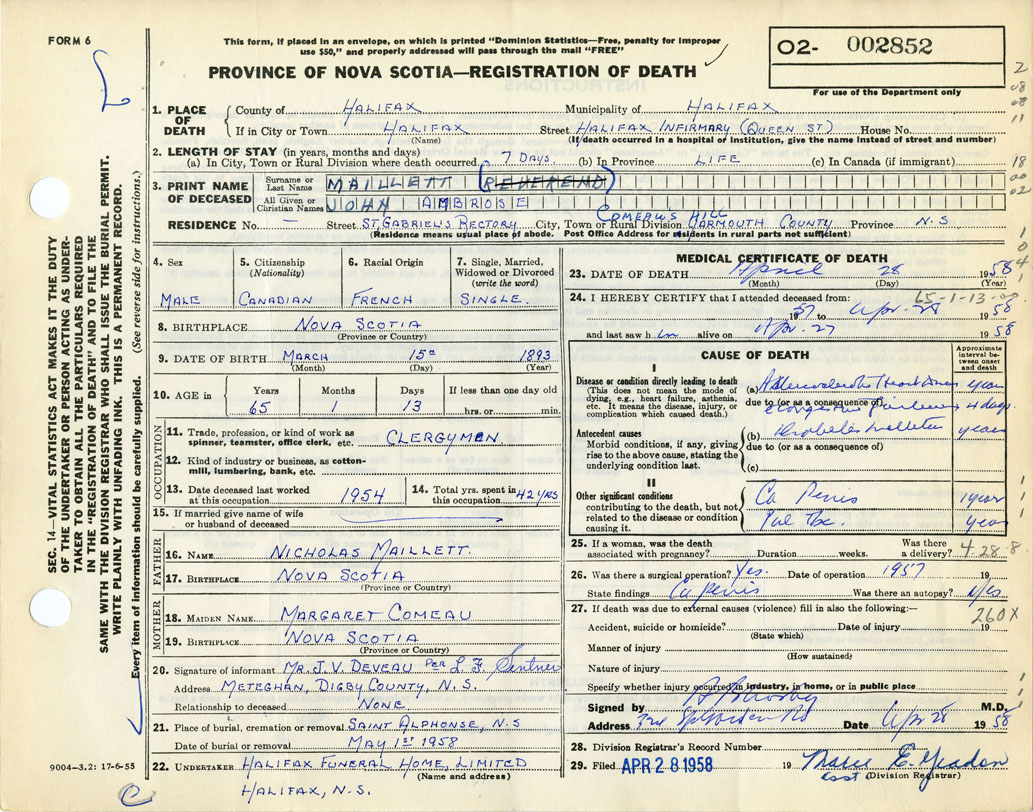 FORM 6
This form, if placed in an envelope, on which is printed "Dominion Statistics—Free, penalty for improper
use $50," and properly addressed will pass through the mail "FREE"
PROVINCE OF NOVA SCOTIA—REGISTRATION OF DEATH
O2- 002852
For use of the Department only
1. PLACE OF DEATH
County of HALIFAX Municipality of HALIFAX
If in City or Town HALIFAX Street HALIFAX INFIRMARY (QUEEN ST) House No.
(Name) (If death occurred in a hospital or institution, give the name instead of street and number)
2. LENGTH OF STAY (in years, months and days)
(a) In City, Town or Rural Division where death occurred 7 DAYS (b) In Province LIFE (c) In Canada (if immigrant)
3. PRINT NAME OF DECEASED
Surname or Last Name MAILLETT (REVEREND)
All Given or Christian Names JOHN AMBROSE
RESIDENCE No. — Street ST. GABRIEL'S RECTORY City, Town or Rural Division COMEAU'S HILL YARMOUTH COUNTY Province N.S
(Residence means usual place of abode. Post Office Address for residents in rural parts not sufficient)
4. Sex
MALE
5. Citizenship
(Nationality)
CANADIAN
6. Racial Origin
FRENCH
7. Single, Married,
Widowed or Divorced
(write the word)
SINGLE.
8. BIRTHPLACE NOVA SCOTIA
(Province or Country)
9. DATE OF BIRTH MARCH 15th 1893
(Month) (Day) (Year)
10. AGE in
Years Months Days If less than one day old
65 1 13 hrs. or min.
OCCUPATION
11. Trade, profession, or kind of work as
spinner, teamster, office clerk, etc. CLERGYMAN
12. Kind of industry or business, as cotton-
mill, lumbering, bank, etc.
13. Date deceased last worked
at this occupation 1954
14. Total yrs. spent in
this occupation 42 YRS
15. If married give name of wife
or husband of deceased
FATHER
16. NAME NICHOLAS MAILLETT.
17. BIRTHPLACE NOVA SCOTIA
(Province or Country)
MOTHER
18. MAIDEN NAME MARGARET COMEAU
19. BIRTHPLACE NOVA SCOTIA
(Province or Country)
20. Signature of informant MR. J. V. DEVEAU PER L. F.
Address METEGHAN, DIGBY COUNTY, N.S.
Relationship to deceased NONE
21. Place of burial, cremation or removal SAINT ALPHONSE, N.S
Date of burial or removal MAY 1st 1958
22. UNDERTAKER HALIFAX FUNERAL HOME, LIMITED
(Name and address)
HALIFAX, N.S.
MEDICAL CERTIFICATE OF DEATH
23. DATE OF DEATH April 28 1958
(Month) (Day) (Year)
24. I HEREBY CERTIFY that I attended deceased from: 65-1-13
1957 to Apr. 28 1958
and last saw him alive on Apr. 27 1958
CAUSE OF DEATH
Approximate interval between onset and death
I
Disease or condition directly leading to death
(This does not mean the mode of
dying, e.g., heart failure, asthenia,
etc. It means the disease, injury, or
complication which caused death.)
(a) Heart years
due to (or as a consequence of) Congestive Failure 4 days.
Antecedent causes
Morbid conditions, if any, giving
rise to the above cause, stating the
underlying condition last.
(b) Diabetes Mellitus years
due to (or as a consequence of)
(c)
II
Other significant conditions
contributing to the death, but not
related to the disease or condition
causing it.
Ca Penis 1 year
Pul Tbc. years
25. If a woman, was the death
associated with pregnancy? Duration weeks. Was there
a delivery? 4-28-8
26. Was there a surgical operation? Yes. Date of operation 1957 19
State findings Ca Penis Was there an autopsy?
27. If death was due to external causes (violence) fill in also the following:— 260X
Accident, suicide or homicide? Date of injury 19
(State which)
Manner of injury
(How sustained)
Nature of injury
Specify whether injury occurred in industry, in home, or in public place
Signed by M.D.
Address Date Apr 28 1958
28. Division Registrar's Record Number
29. Filed APR 28 1958 19 Marie E.
(Division Registrar)
SEC. 14—VITAL STATISTICS ACT MAKES IT THE DUTY
OF THE UNDERTAKER OR PERSON ACTING AS UNDER-
TAKER TO OBTAIN ALL THE PARTICULARS REQUIRED
IN THE "REGISTRATION OF DEATH" AND TO FILE THE
SAME WITH THE DIVISION REGISTRAR WHO SHALL ISSUE THE BURIAL PERMIT.
WRITE PLAINLY WITH UNFADING INK. THIS IS A PERMANENT RECORD.
Every item of information should be carefully supplied. (See reverse side for instructions.)
9004—3.2: 17-6-55